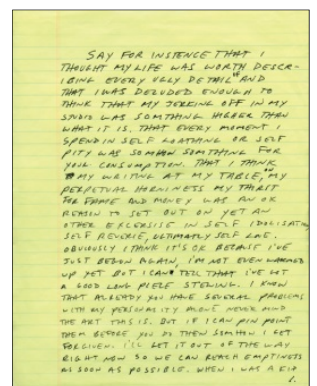 SAY FOR INSTENCE THAT I
THOUGHT MY LIFE WAS WORTH DESCR-
IBING EVERY UGLY DETAIL" AND
THAT I WAS DELUDED ENOUGH TO
THINK THAT MY JERKING OFF IN MY
STUDIO WAS SOMTHING HIGHER THEN
WHAT IT IS. THAT EVERY MOMENT I
SPEND IN SELF LOATHING OR SELF
PITY WAS SOMHOW SOMTHING FOR
YOUR CONSUMPTION. THAT I THINK
MY WRITING AT MY TABLE, "MY
PERPETUAL HORNINESS MY THIRST
FOR FAME AND MONEY WAS AN OK
REASON TO SET OUT ON YET AN
OTHER EXCERSISE IN SELF IDOLISATING
SELF REVERIE, ULTIMATLY SELF LOVE.
OBVIOUSLY I THINK IT'S OK BECAUSE I'VE
JUST BEGUN AGAIN, I'M NOT EVEN WARMED
UP YET BUT I CAN TELL THAT I'VE GOT
A GOOD LONG PIECE STEWING. I KNOW
THAT ALREADY YOU HAVE SEVERAL PROBLEMS
WITH MY PERSONALITY ALONE NEVER MIND
THE ART THIS IS. BUT IF I CAN PIN POINT
THEM BEFORE YOU DO THEN SOMHOW I GET
FORGIVEN. I'LL GET IT OUT OF THE WAY
RIGHT NOW SO WE CAN REACH EMPTINESS
AS SOON AS POSSIBLE. WHEN I WAS A KID